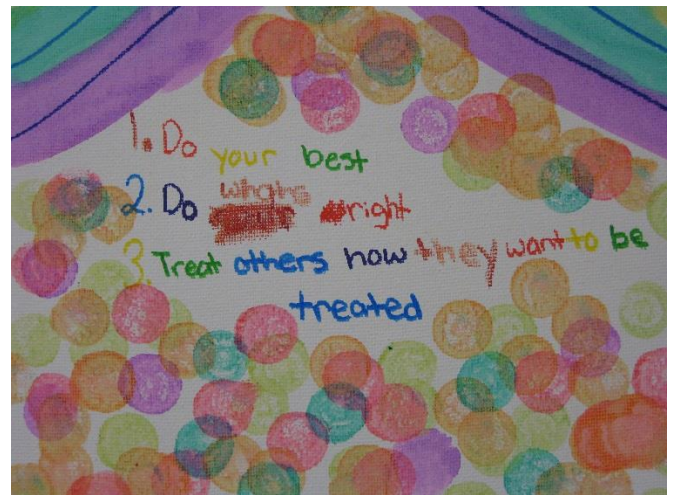 1. Do your best
2. Do whats right
3. Treat others how they want to be
treated